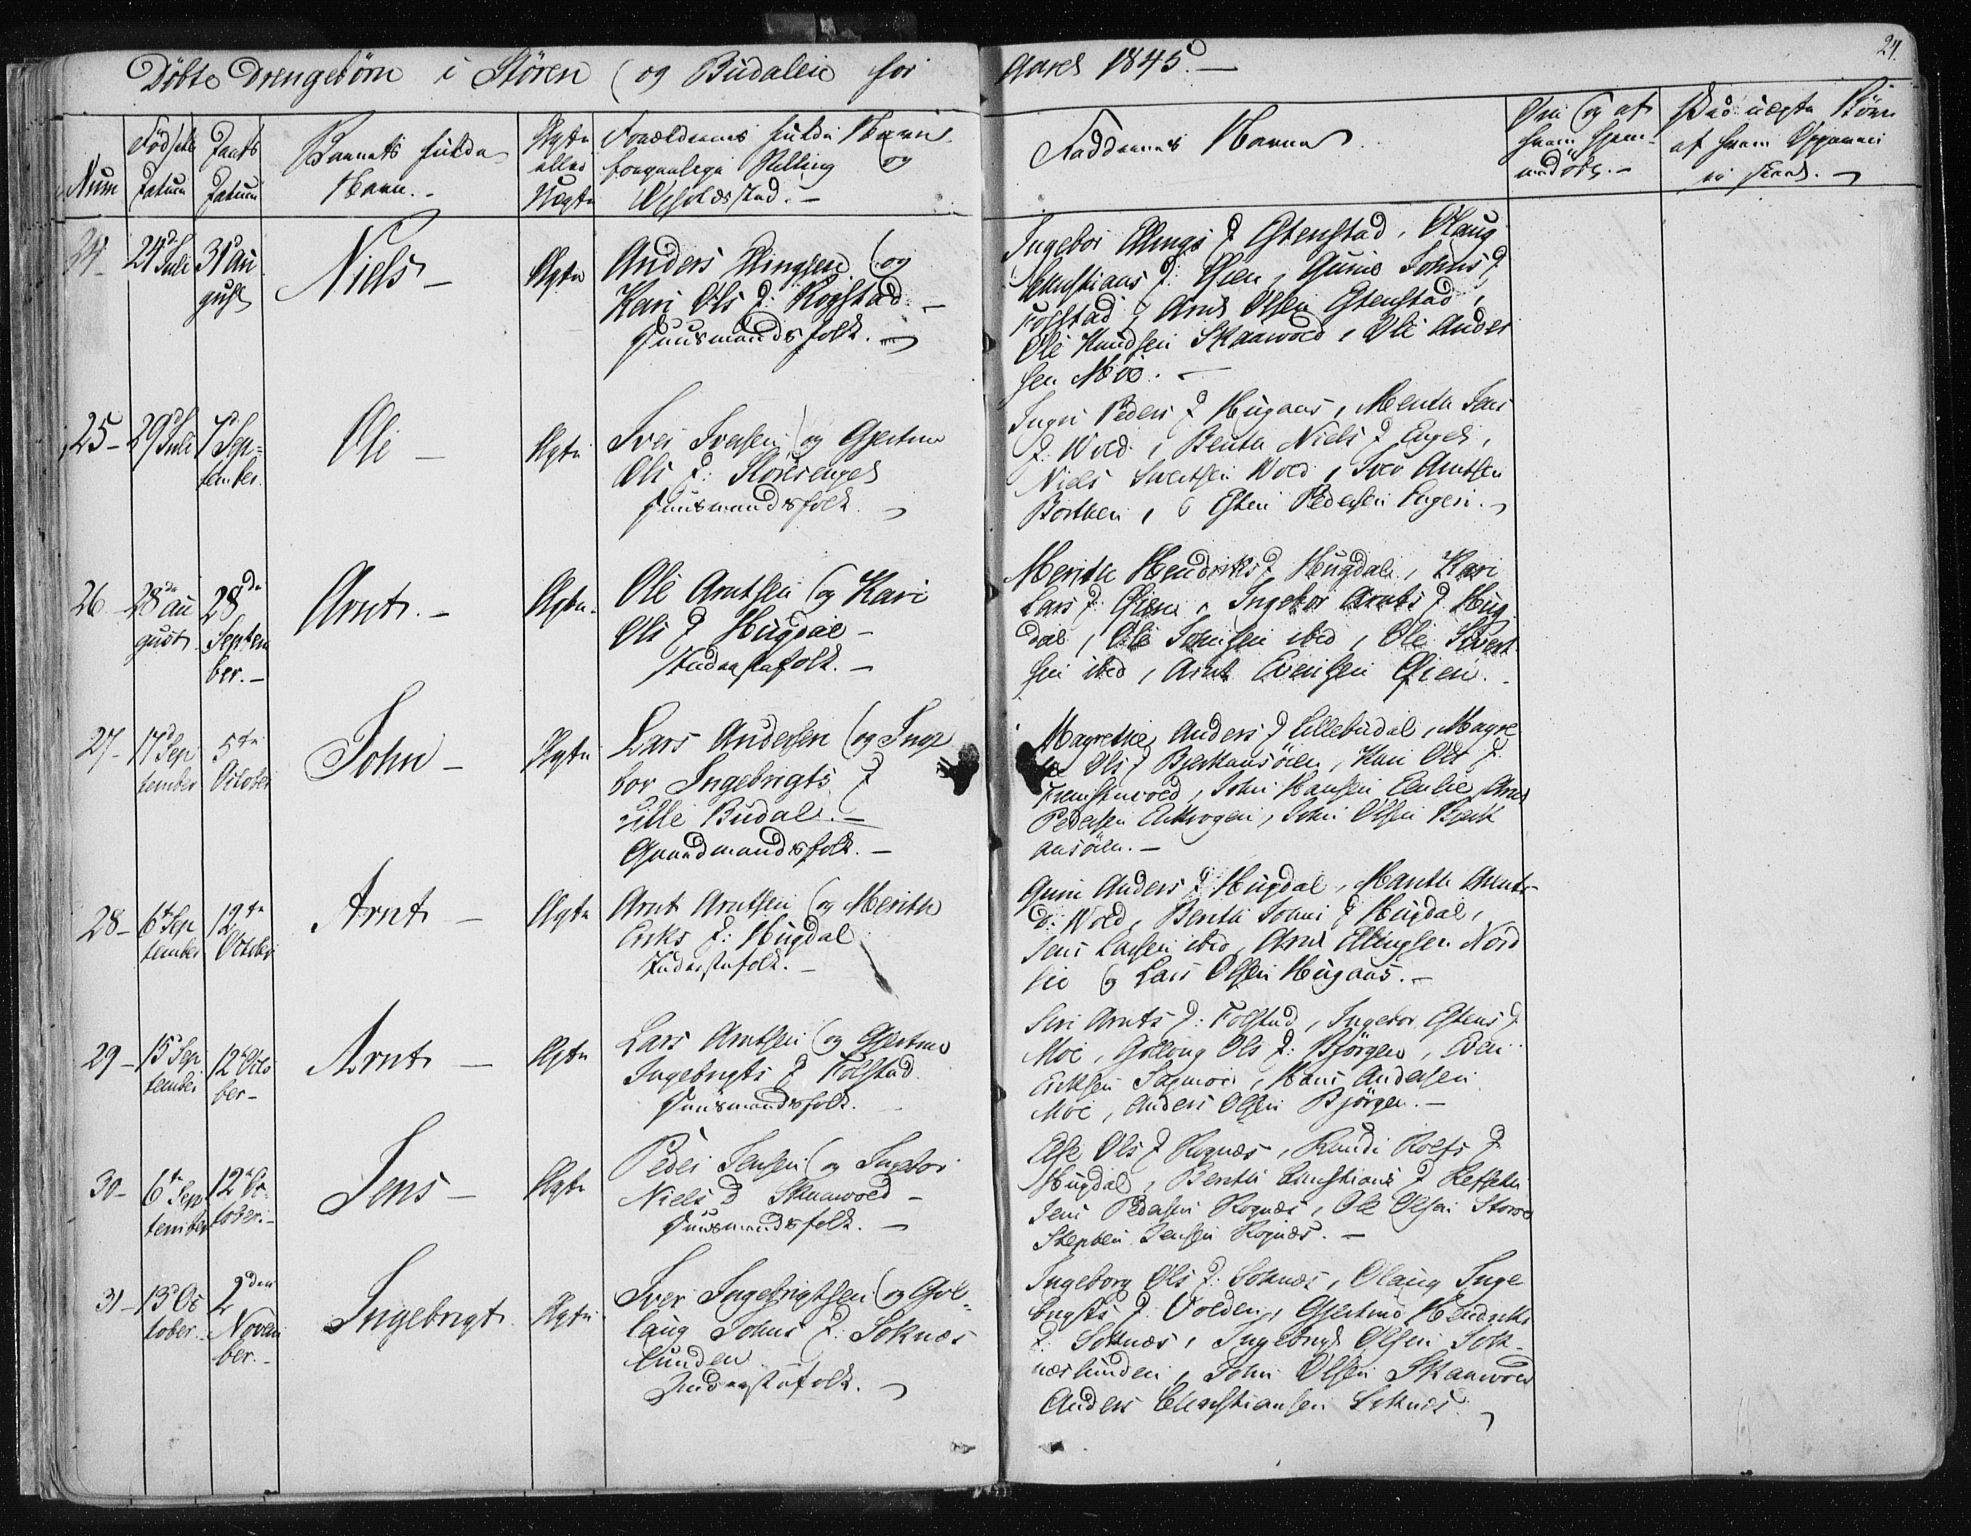 Døbte Drengebørn i Støren og Budalen for Aaret 1845. —
24.
Num
Fødsels Datum
Daabs Datum
Barnets fulde Navn. —
Ægte eller Uægte
Forældrenes fulde Navne
borgerlige Stilling og
Opholdssted. —
Faddernes Navne
Om og af
hvem hjem-
medøbt. —
Paa uægte Børn
af hvem
24 —
24d Juli
31d Au
gust
Niels —
Ægte
Anders Ellingsen og
Kari Ols D: Rogstad —
Huusmandsfolk. —
Ingebor Ellings D Estenstad, Olaug
Christians D: Øien, Guine Johns D
Folstad, Arnt Olsen Estenstad,
Ole Knudsen Skaarwold, Ole Ander
sen Moe. —
25 —
29d Juli
7d Sep-
tember.
Ole —
Ægte
Iver Iversen og Gjertrue
Ols D: Storrenget
Huusmandsfolk. —
Inger Peders D Hugaas, Merith Lars
D: Wold, Berith Niels D Enget,
Niels Sivertsen Wold, Iver Arntsen
Borthen, Esten Pedersen Engen. —
26 —
28de Au
gust
28de
Septem
ber. —
Arnt. —
Ægte.
Ole Arntsen og Kari
Ols D Hugdal —
Inderstefolk. —
Merith Hendriks D Hugdal, Kari
Lars D: Øien, Ingebor Arnts D Hug
dal, Ole Jensen ibid, Ole Sivert
sen ibid, Arnt Evensen Øien. —
27 —
17d Sep
tember
5te
October
John —
Ægte
Lars Andersen og Inge
bor Ingebrigts D
Lille Budal. —
Gaardmandsfolk. —
Magrethe Anders D Lillebudal, Magre
Ols D Bjerkansøien, Kari Ols D:
, John Hansen Enlie, Arnt
Pedersen , John Olsen Bjerk
ansøien. —
28 —
6te Sep
tember
12te
October
Arnt —
Ægte
Arnt Arntsen og Merith
Eriks D: Hugdal
Inderstefolk. —
Guru Anders D Hugdal, Marith Arnts
D: Wold, Berith Johns D Hugdal,
Jens Larsen ibid, Arnt Ellingsen Nord
lie og Lars Olsen Hugaas. —
29 —
15d Sep
tember
12te Octo
ber —
Arnt —
Ægte
Lars Arntsen og Gjertrue
Ingebrigts D Folstad.
Huusmandsfolk. —
Siri Arnts D: Folstad, Ingebor Estens D
Moe, Gollaug Ols D: Bjørgen, Even
Eriksen Sagmoen, Hans Andersen
Moe, Anders Olsen Bjørgen. —
30 —
6te Sep
tember
12te Oc
tober. —
Jens —
Ægte
Peder Jensen og Ingebor
Niels D Skaarwold —
Huusmandsfolk. —
Else Ols D Rognæs, Randi Rolfs D
Hugdal, Berith Christians D
Jens Pedersen Rognæs, Ole Olsen Storrø
Stephen Jensen Rognæs. —
31 —
13d Oc
tober —
2den
Novem
ber. —
Ingebrigt
Ægte
Iver Ingebrigtsen og Gol-
laug Johns D: Soknæs
lunden
Inderstefolk. —
Ingeborg Ols D: Soknæs, Olaug Inge
brigts D: Volden, Gjertrud Hendriks
D: Soknæs, Ingebrigt Olsen Sok-
næslunden, John Olsen Skaarwold
Anders Christiansen Soknæs. —